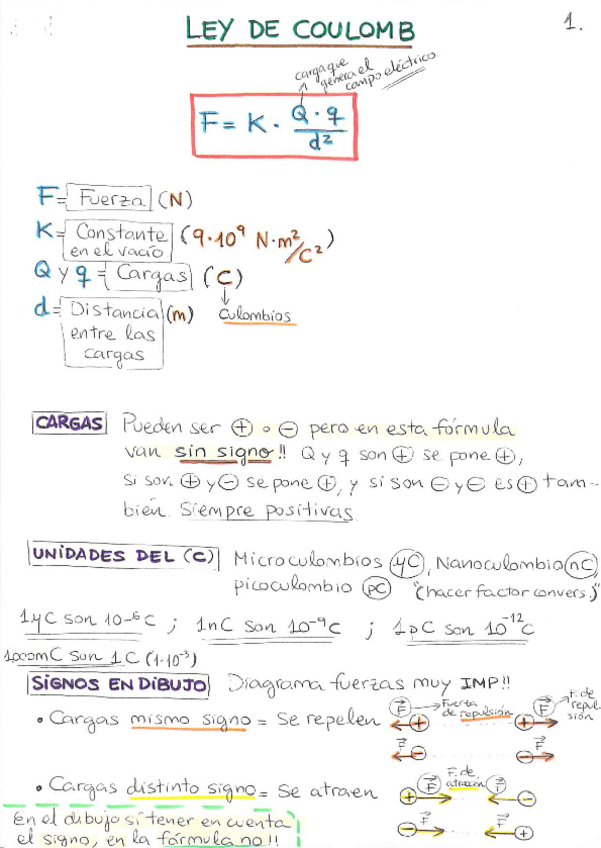 LEY DE COULOMB
1.
carga que
genera el
campo eléctrico
F = K · Q · q / d²
F = Fuerza (N)
K = Constante en el vacío (9·10⁹ N·m²/C²)
Q y q = Cargas (C)
Culombios
d = Distancia (m)
entre las
cargas
CARGAS Pueden ser ⊕ o ⊖ pero en esta fórmula
van sin signo!! Q y q son ⊕ se pone ⊕,
si son ⊕ y ⊖ se pone ⊕, y si son ⊖ y ⊖ es ⊕ tam-
bién. Siempre positivas
UNIDADES DEL (C) Microculombios (μC), Nanoculombio (nC)
picoculombio (pC) "(hacer factor convers.)"
1μC son 10⁻⁶ C ; 1nC son 10⁻⁹ C ; 1pC son 10⁻¹² C
1000mC son 1C (1·10⁻³)
SIGNOS EN DIBUJO Diagrama fuerzas muy IMP!!
• Cargas mismo signo = Se repelen
F → Fuerza de repulsión
F F. de repulsión
← ⊕ ⊕ →
F ← ⊖ ⊖ → F
• Cargas distinto signo = Se atraen
F F. de atracción F
⊕ → ← ⊖
⊖ → F F ← ⊕
En el dibujo sí tener en cuenta
el signo, en la fórmula no!!